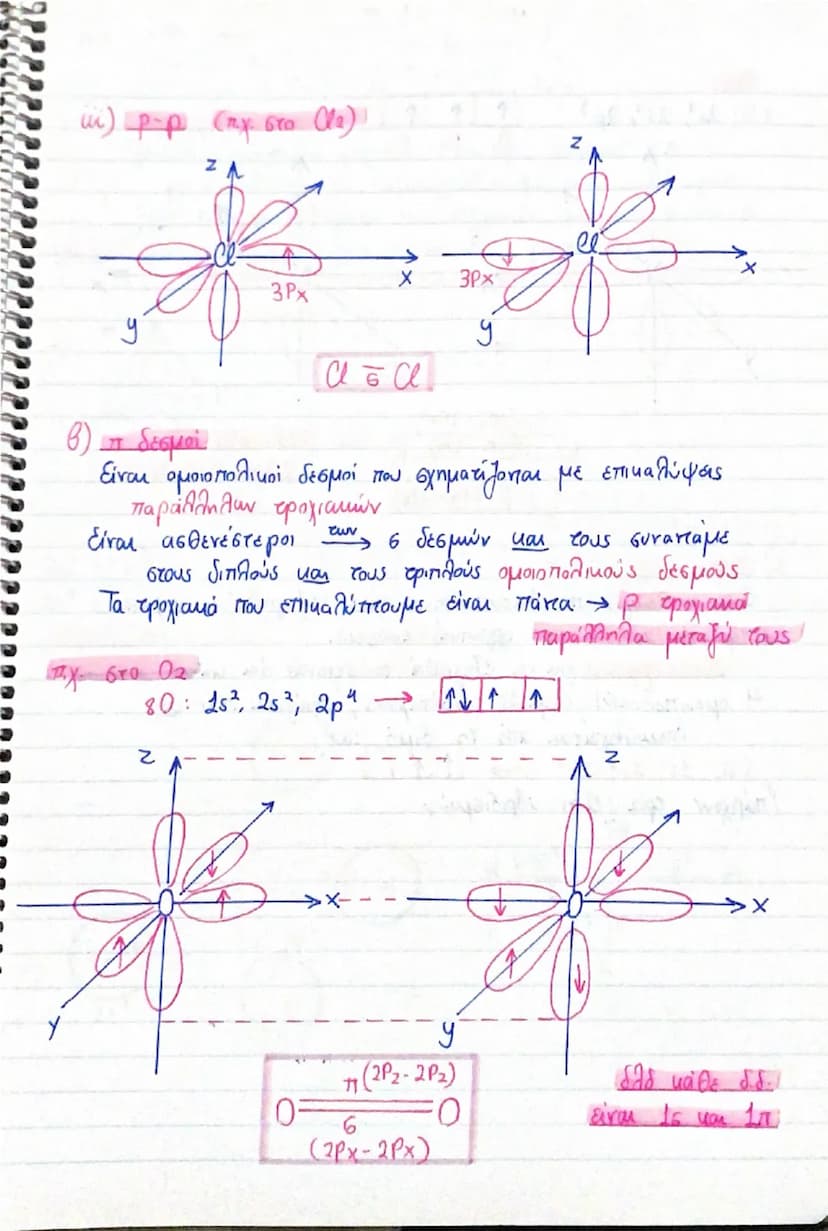 iii) p-p (πχ στο Cl₂)
z z
Cl ↑ Cl ↓
3Px x 3Px x
y y
Cl –σ Cl
β) π δεσμοί
Είναι ομοιοπολικοί δεσμοί που σχηματίζονται με επικαλύψεις
παράλληλων τροχιακών
Είναι ασθενέστεροι των → σ δεσμών και τους συναντάμε
στους διπλούς και τους τριπλούς ομοιοπολικούς δεσμούς
Τα τροχιακά που επικαλύπτουμε είναι πάντα → p τροχιακά
παράλληλα μεταξύ τους
πχ. στο O₂
₈O: 1s², 2s², 2p⁴ → ↑↓ ↑ ↑
z z
↓ ↓
O ↑ x ↓ O x
↑ ↑ ↓
y y
π (2Pz - 2Pz)
O = O
σ
(2Px - 2Px)
δλδ κάθε δ.δ.
είναι 1σ και 1π